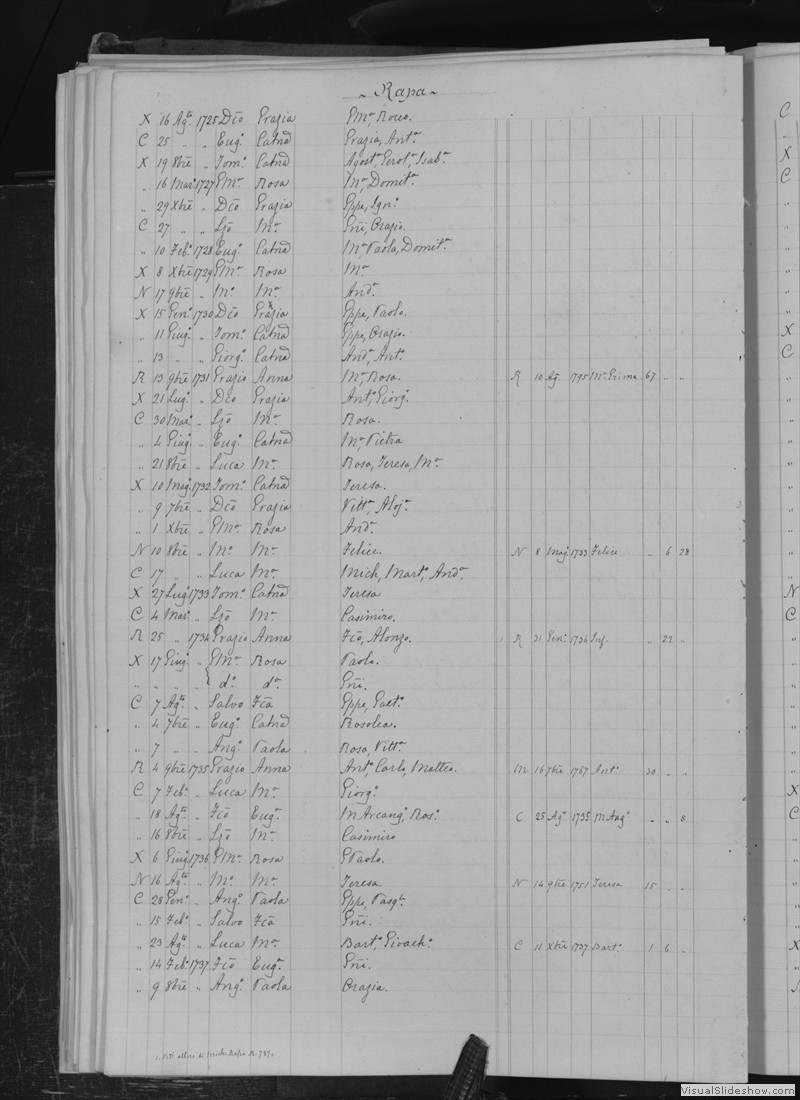 ~ Rapa ~
X 16 Agto 1725 Dco Grazia Gmo Rocco.
C 25 " " Eugo Catnd Grazia, Anta
X 19 8bre " Tomo Catnd Agosta Gerola Isaba
" 16 Maro 1727 Gmo Rosa Ma Domita
" 29 Xbre " Dco Grazia Gppe, Igno
C 27 " " Ljo Ma Gni, Orazio.
" 10 Febo 1728 Eugo Catnd Ma Paola, Domita
X 8 Xbre 1729 Gmo Rosa Ma
N 17 9bre " Mo Ma Anda
X 15 Geno 1730 Dco Grazia Gppe, Paolo.
" 11 Giugo " Tomo Catnd Gppe, Orazio.
" 13 " " Giorgo Catnd Anda, Anto
R 13 9bre 1731 Grazio Anna Ma, Rosa. R 10 Ago 1795 Ma Grima 67 " "
X 21 Lugo " Dco Grazia Anto, Giorgo
C 30 Maro " Ljo Ma Rosa.
" 4 Giugo " Eugo Catnd Ma Pietra
" 21 8bre " Luca Ma Rosa, Teresa, Ma
X 10 Mago 1732 Tomo Catnd Teresa.
" 9 7bre " Dco Grazia Vitta, Aloja
" 1 Xbre " Gmo Rosa Anda
N 10 8bre " Mo Ma Felice. N 8 Mago 1733 Felice " 6 28
C 17 " " Luca Ma Mich, Marto, Anda
X 27 Lugo 1733 Tomo Catnd Teresa
C 4 Maro " Ljo Ma Casimiro.
R 25 " 1734 Grazio Anna Fco, Alonzo. 1 R 31 Geno 1736 Inf. " 22 "
X 17 Giugo " Gmo Rosa Paolo.
" " " " do da Gni.
C 7 Agto " Salvo Fca Gppe, Gaeto
" 4 7bre " Eugo Catnd Rosolea.
" 7 " " Ango Paola Rosa, Vitta
R 4 9bre 1735 Grazio Anna Anto, Carlo, Matteo. M 16 7bre 1767 Anto 30 " "
C 7 Febo " Luca Ma Giorgo
" 18 Agto " Fco Euga M Arcanga, Rosa C 25 Ago 1735 M Anga " " 8
" 16 8bre " Ljo Ma Casimiro
X 6 Giugo 1736 Gmo Rosa G Paolo.
N 16 Agto " Mo Ma Teresa N 14 9bre 1751 Teresa 15 " "
C 28 Geno " Ango Paola Gppe, Pasqle
" 15 Febo " Salvo Fca Gni.
" 23 Agto " Luca Ma Barto, Gioacho C 11 Xbre 1737 Barto 1 6 "
" 14 Febo 1737 Fco Euga Gni.
" 9 8bre " Ango Paola Orazia.
VisualSlideshow.com